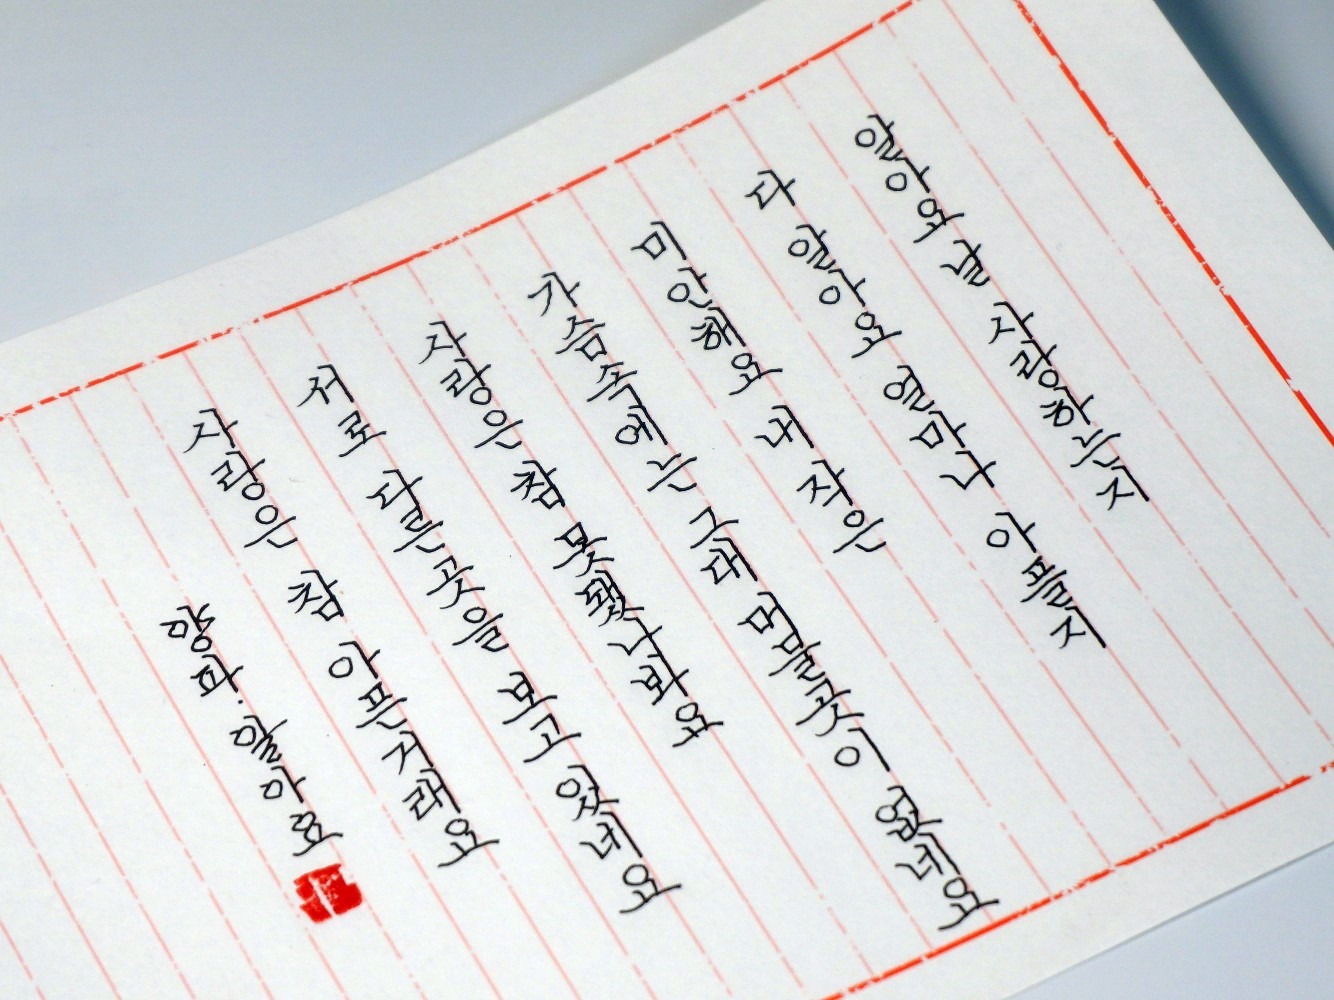 알아요 날 사랑하는지
다 알아요 얼마나 아플지
미안해요 내 작은
가슴속에는 그대 머물곳이 없네요
사랑은 참 못됐나봐요
서로 다른곳을 보고 있네요
사랑은 참 아픈거래요
양파. 알아효